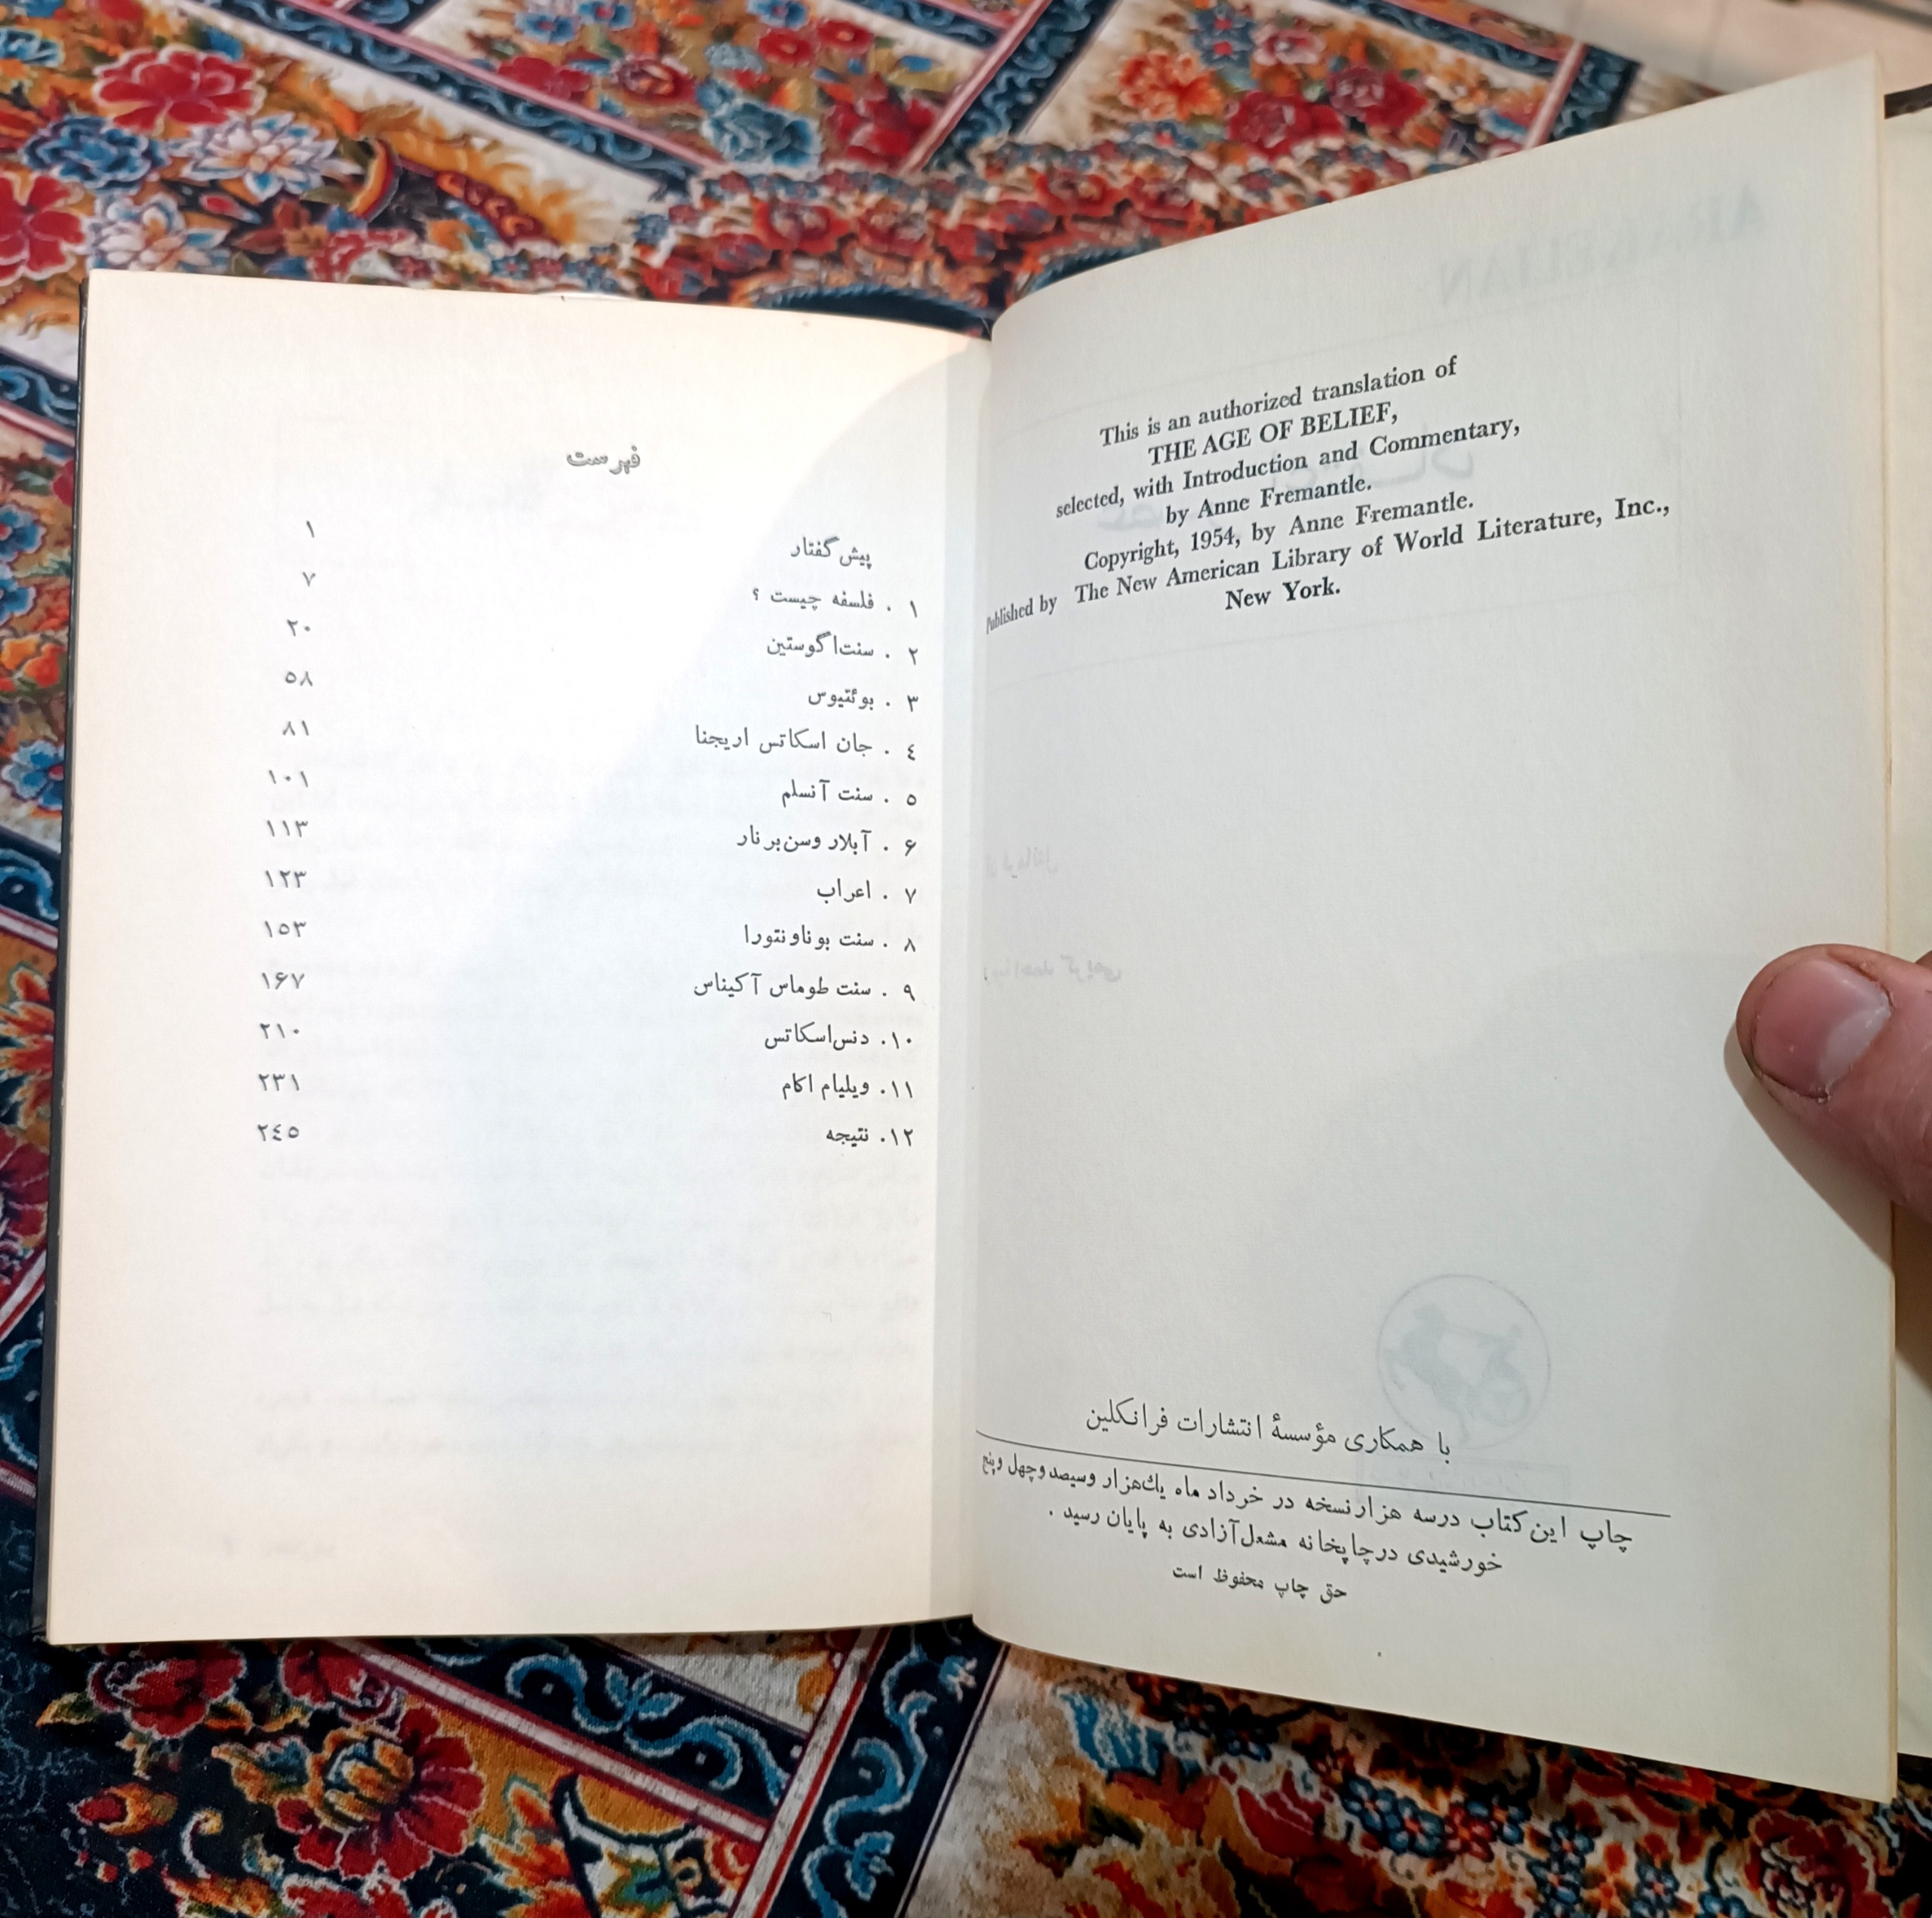 This is an authorized translation of
THE AGE OF BELIEF,
selected, with Introduction and Commentary,
by Anne Fremantle.
Copyright, 1954, by Anne Fremantle.
Published by The New American Library of World Literature, Inc.,
New York.
با همکاری مؤسسهٔ انتشارات فرانکلین
چاپ این کتاب درسه هزار نسخه در خرداد ماه یك‌هزار وسیصد وچهل وپنج
خورشیدی درچاپخانه مشعل‌آزادی به پایان رسید .
حق چاپ محفوظ است
فهرست
پیش گفتار ۱
۱ . فلسفه چیست ؟ ۷
۲ . سنت‌اگوستین ۲۰
۳ . بوئتیوس ۵۸
٤ . جان اسکاتس اریجنا ۸۱
۵ . سنت آنسلم ۱۰۱
۶ . آبلار وسن‌برنار ۱۱۳
۷ . اعراب ۱۲۳
۸ . سنت بوناونتورا ۱۵۳
۹ . سنت طوماس آکیناس ۱۶۷
۱۰. دنس‌اسکاتس ۲۱۰
۱۱. ویلیام اکام ۲۳۱
۱۲. نتیجه ۲٤۵
ARAKELIAN